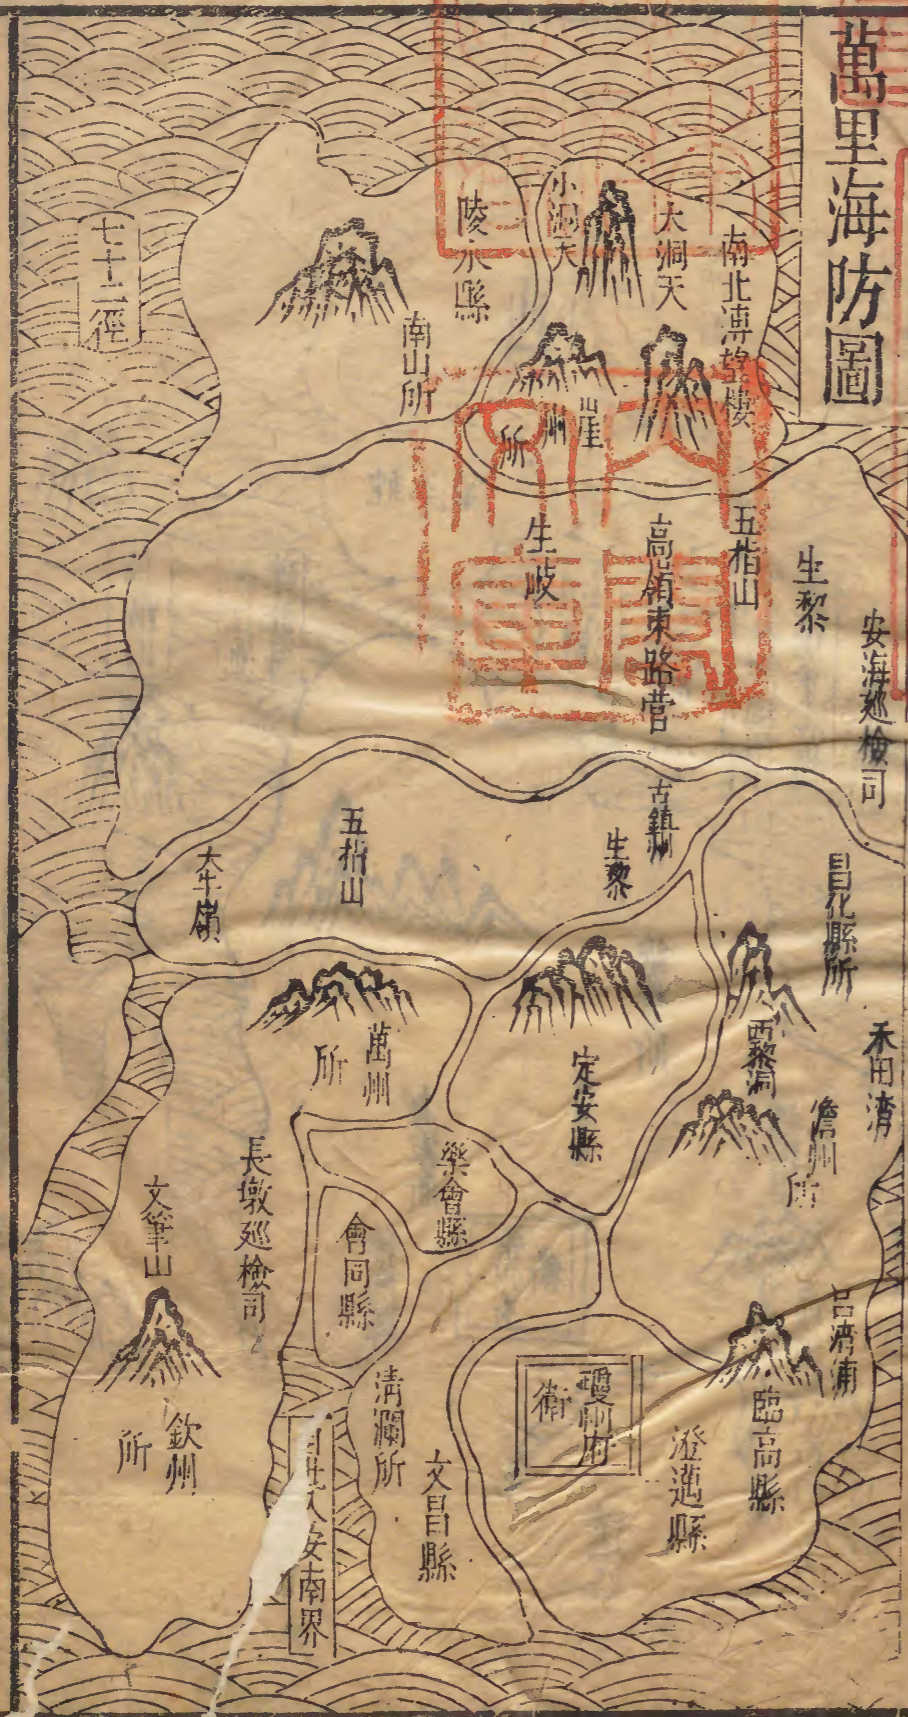 萬里海防圖
南北溥望樓
大洞天
小洞天
陵水縣
南山所
七十二徑
崖州
所
五指山
高嶺東路营
生岐
生黎
安海廵檢司
古鎮州
生黎
五指山
大牛嶺
昌化縣所
禾田湾
西黎洞
儋州
所
定安縣
萬州
所
樂會縣
會同縣
長墩廵檢司
文筆山
欽州
所
呂湾浦
臨高縣
澄邁縣
瓊州府
衛
清瀾所
文昌縣
此入安南界